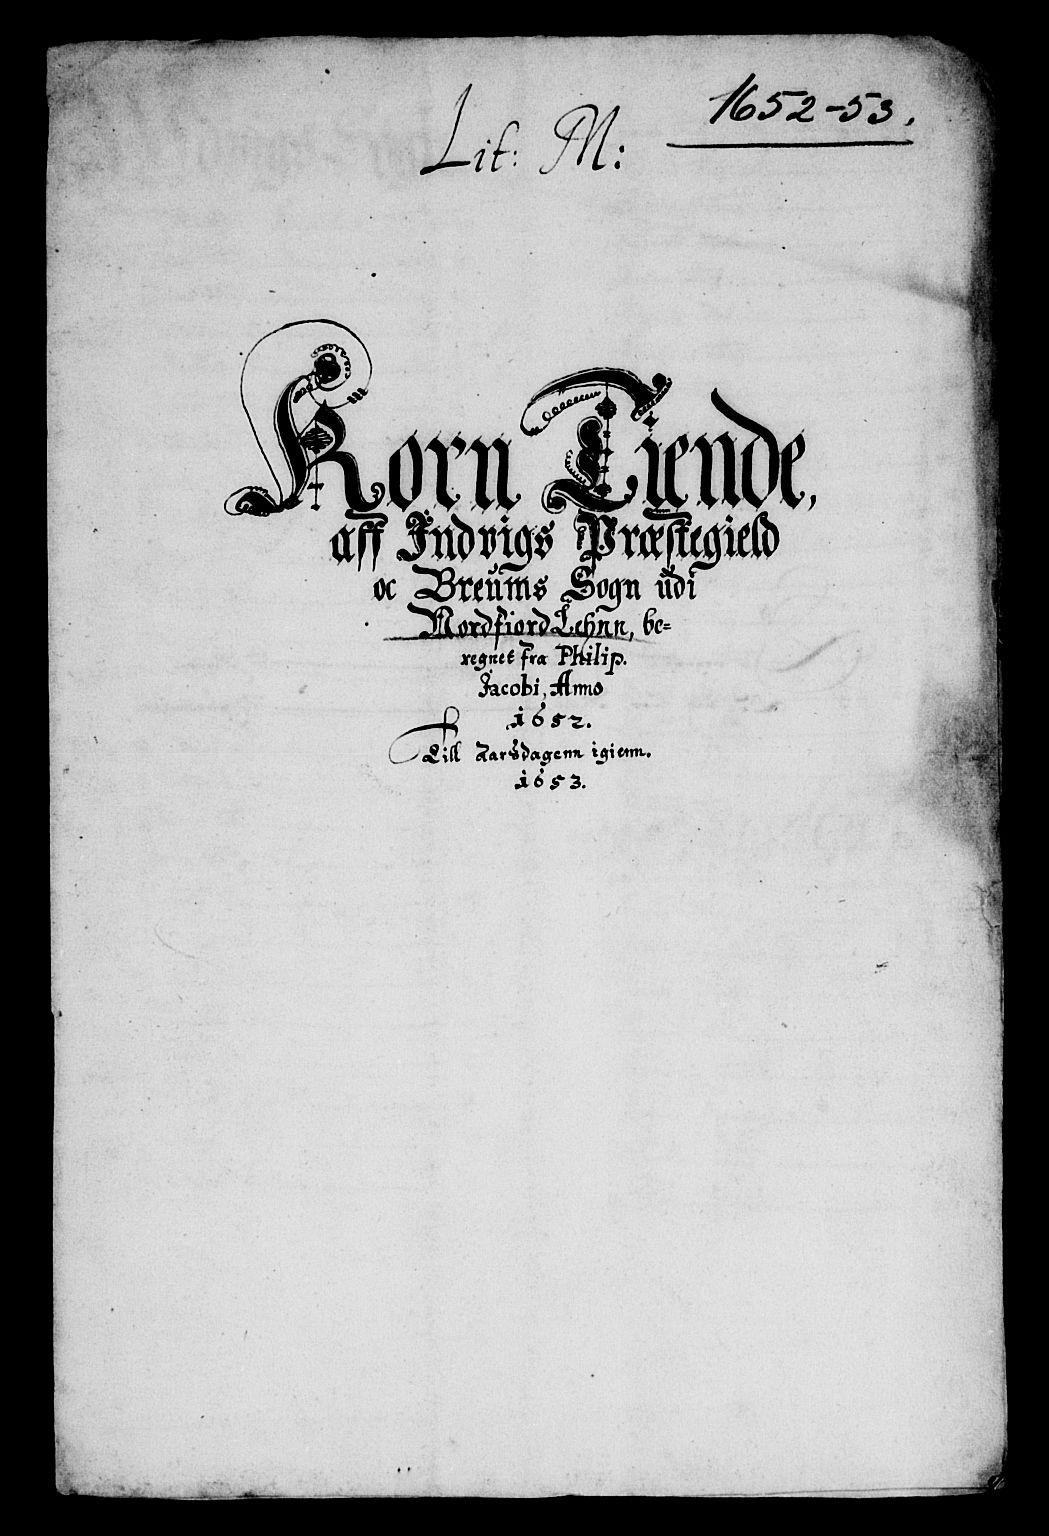 1652-53.
Lit: M:
Korn Tiende,
aff Indvigs Præstegield
oc Breŭms Sogn ŭdi
Nordfiord Lehnn, be=
regnet fra Philip.
Jacobi, Anno
1652.
Till Aarsdagenn igienn.
1653.